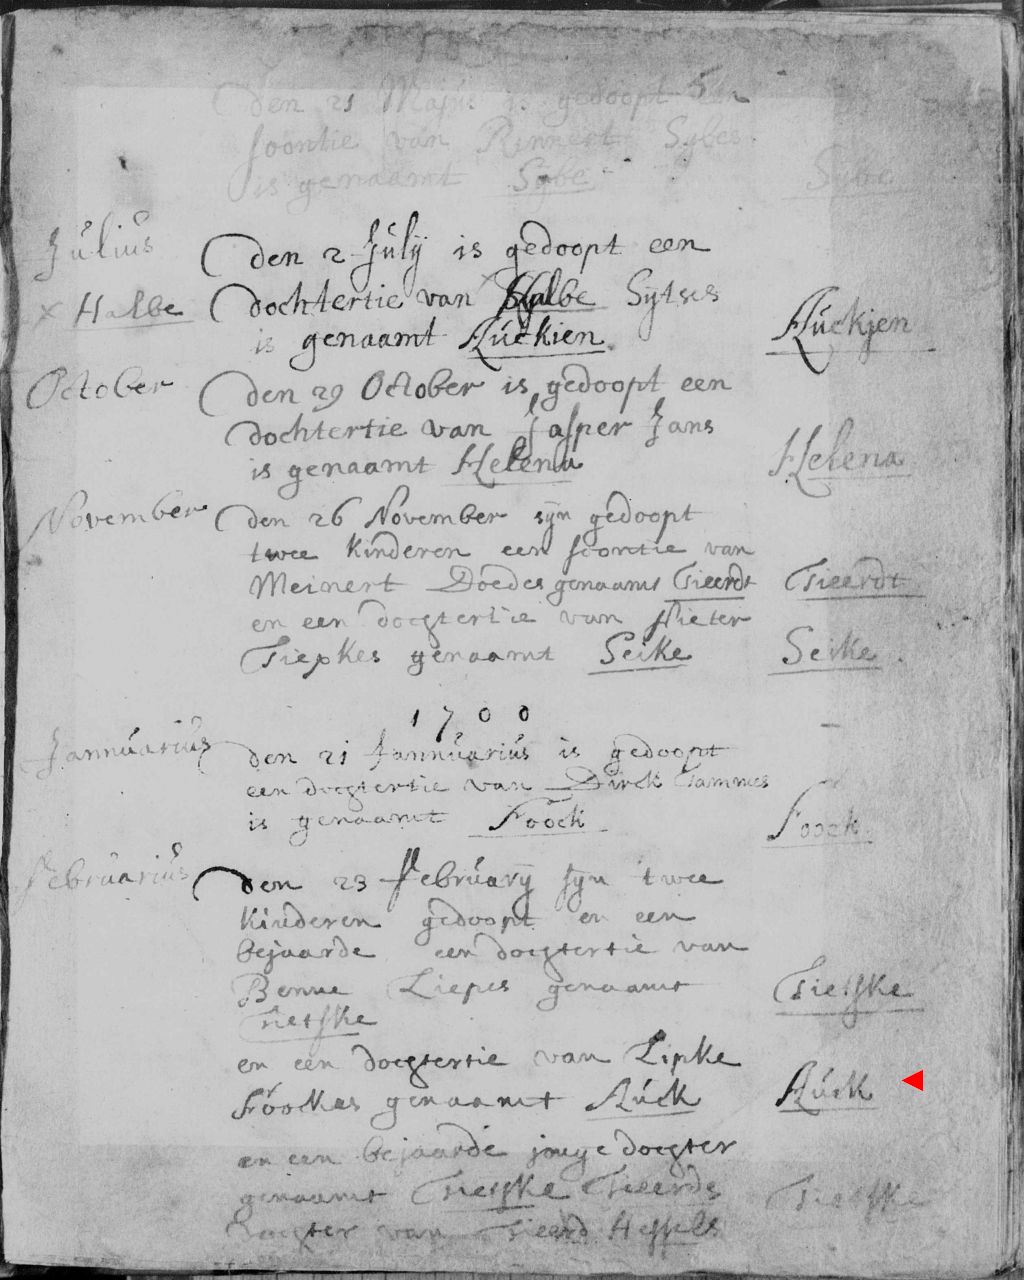 5
Den 21 Majus is gedoopt een
soontie van Rinnert Sybes
is genaamt Sybe Sybe
Julius Den 2 July is gedoopt een
x Halbe dochtertie van Halbe Sytses
is genaamt Auckien. Auckjen
October Den 29 October is gedoopt een
dochtertie van Jasper Jans
is genaamt Helena Helena
November Den 26 November syn gedoopt
twee kinderen een soontie van
Meinert Doedes genaamt Tieerdt Tieerdt
en een docgtertie van Pieter
Tiepkes genaamt Seike Seike
1700
Jannuarius den 21 Jannuarius is gedoopt
een docgtertie van Dirck Tammes
is genaamt Foock Foock
Februarius Den 23 February syn twee
kinderen gedoopt en een
bejaarde een docgtertie van
Benne Liepes genaamt Tietske
Tietske
en een docgtertie van Lipke
Foockes genaamt Auck Auck
en een bejaarde jonge docgter
genaamt Tietske Tieerds Tietske
docgter van Tieerd Hessels